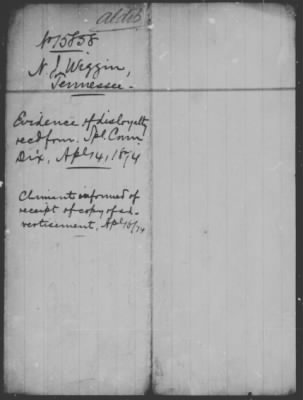 aldis
No 15858
N. J. Wiggin,
Tennessee.
Evidence of disloyalty
recd from Spl. Com.
Dix, Apl 14, 1874
Claimant informed of
receipt of copy of ad-
vertisement, Apl 16/74